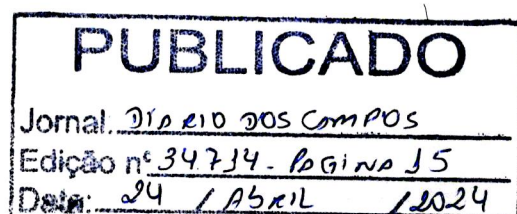 PUBLICADO
Jornal. DIARIO DOS CAMPOS
Edição nº 34.734 - PAGINA 15
Data: 24 / ABRIL / 2024